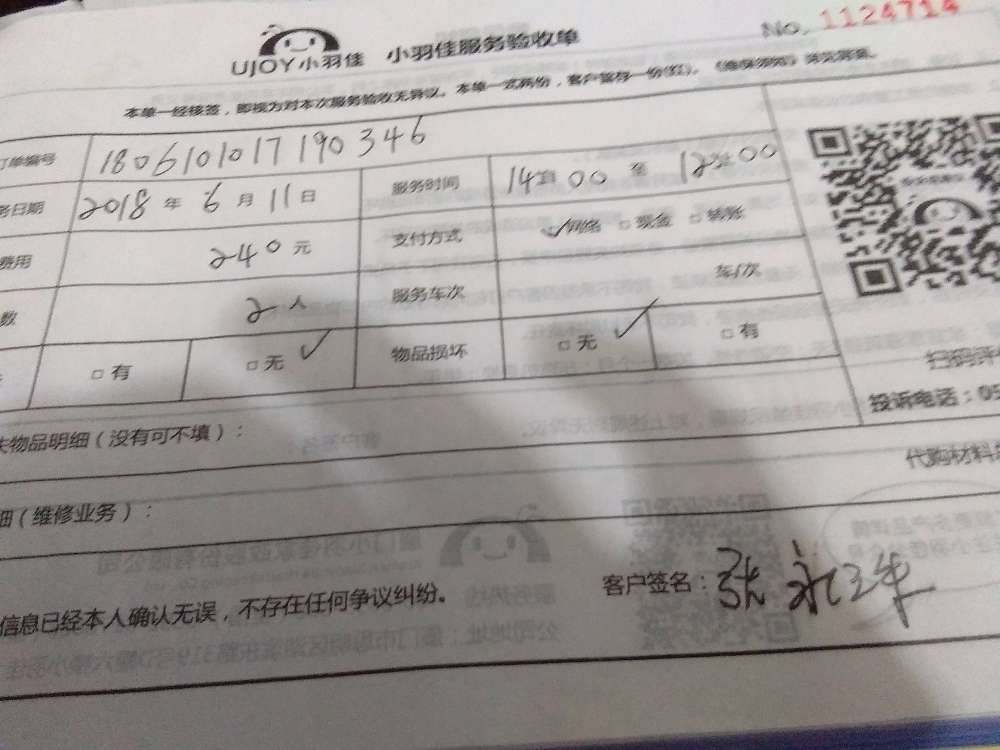 UJOY小羽佳 小羽佳服务验收单
No. 1124714
本单一经接签，即视为对本次服务验收无异议。本单一式两份，客户留存一份(红)。
订单编号 180610101719034​6
务日期 2018 年 6 月 11 日 服务时间 14 00 至 12 00
费用 240 元 支付方式 网络 □ 现金 □ 转账
数 2 人 服务车次 车/次
□ 有 □ 无 物品损坏 □ 无 □ 有
扫码评
投诉电话：05
失物品明细（没有可不填）：
代购材料
细（维修业务）：
信息已经本人确认无误，不存在任何争议纠纷。
客户签名：张永